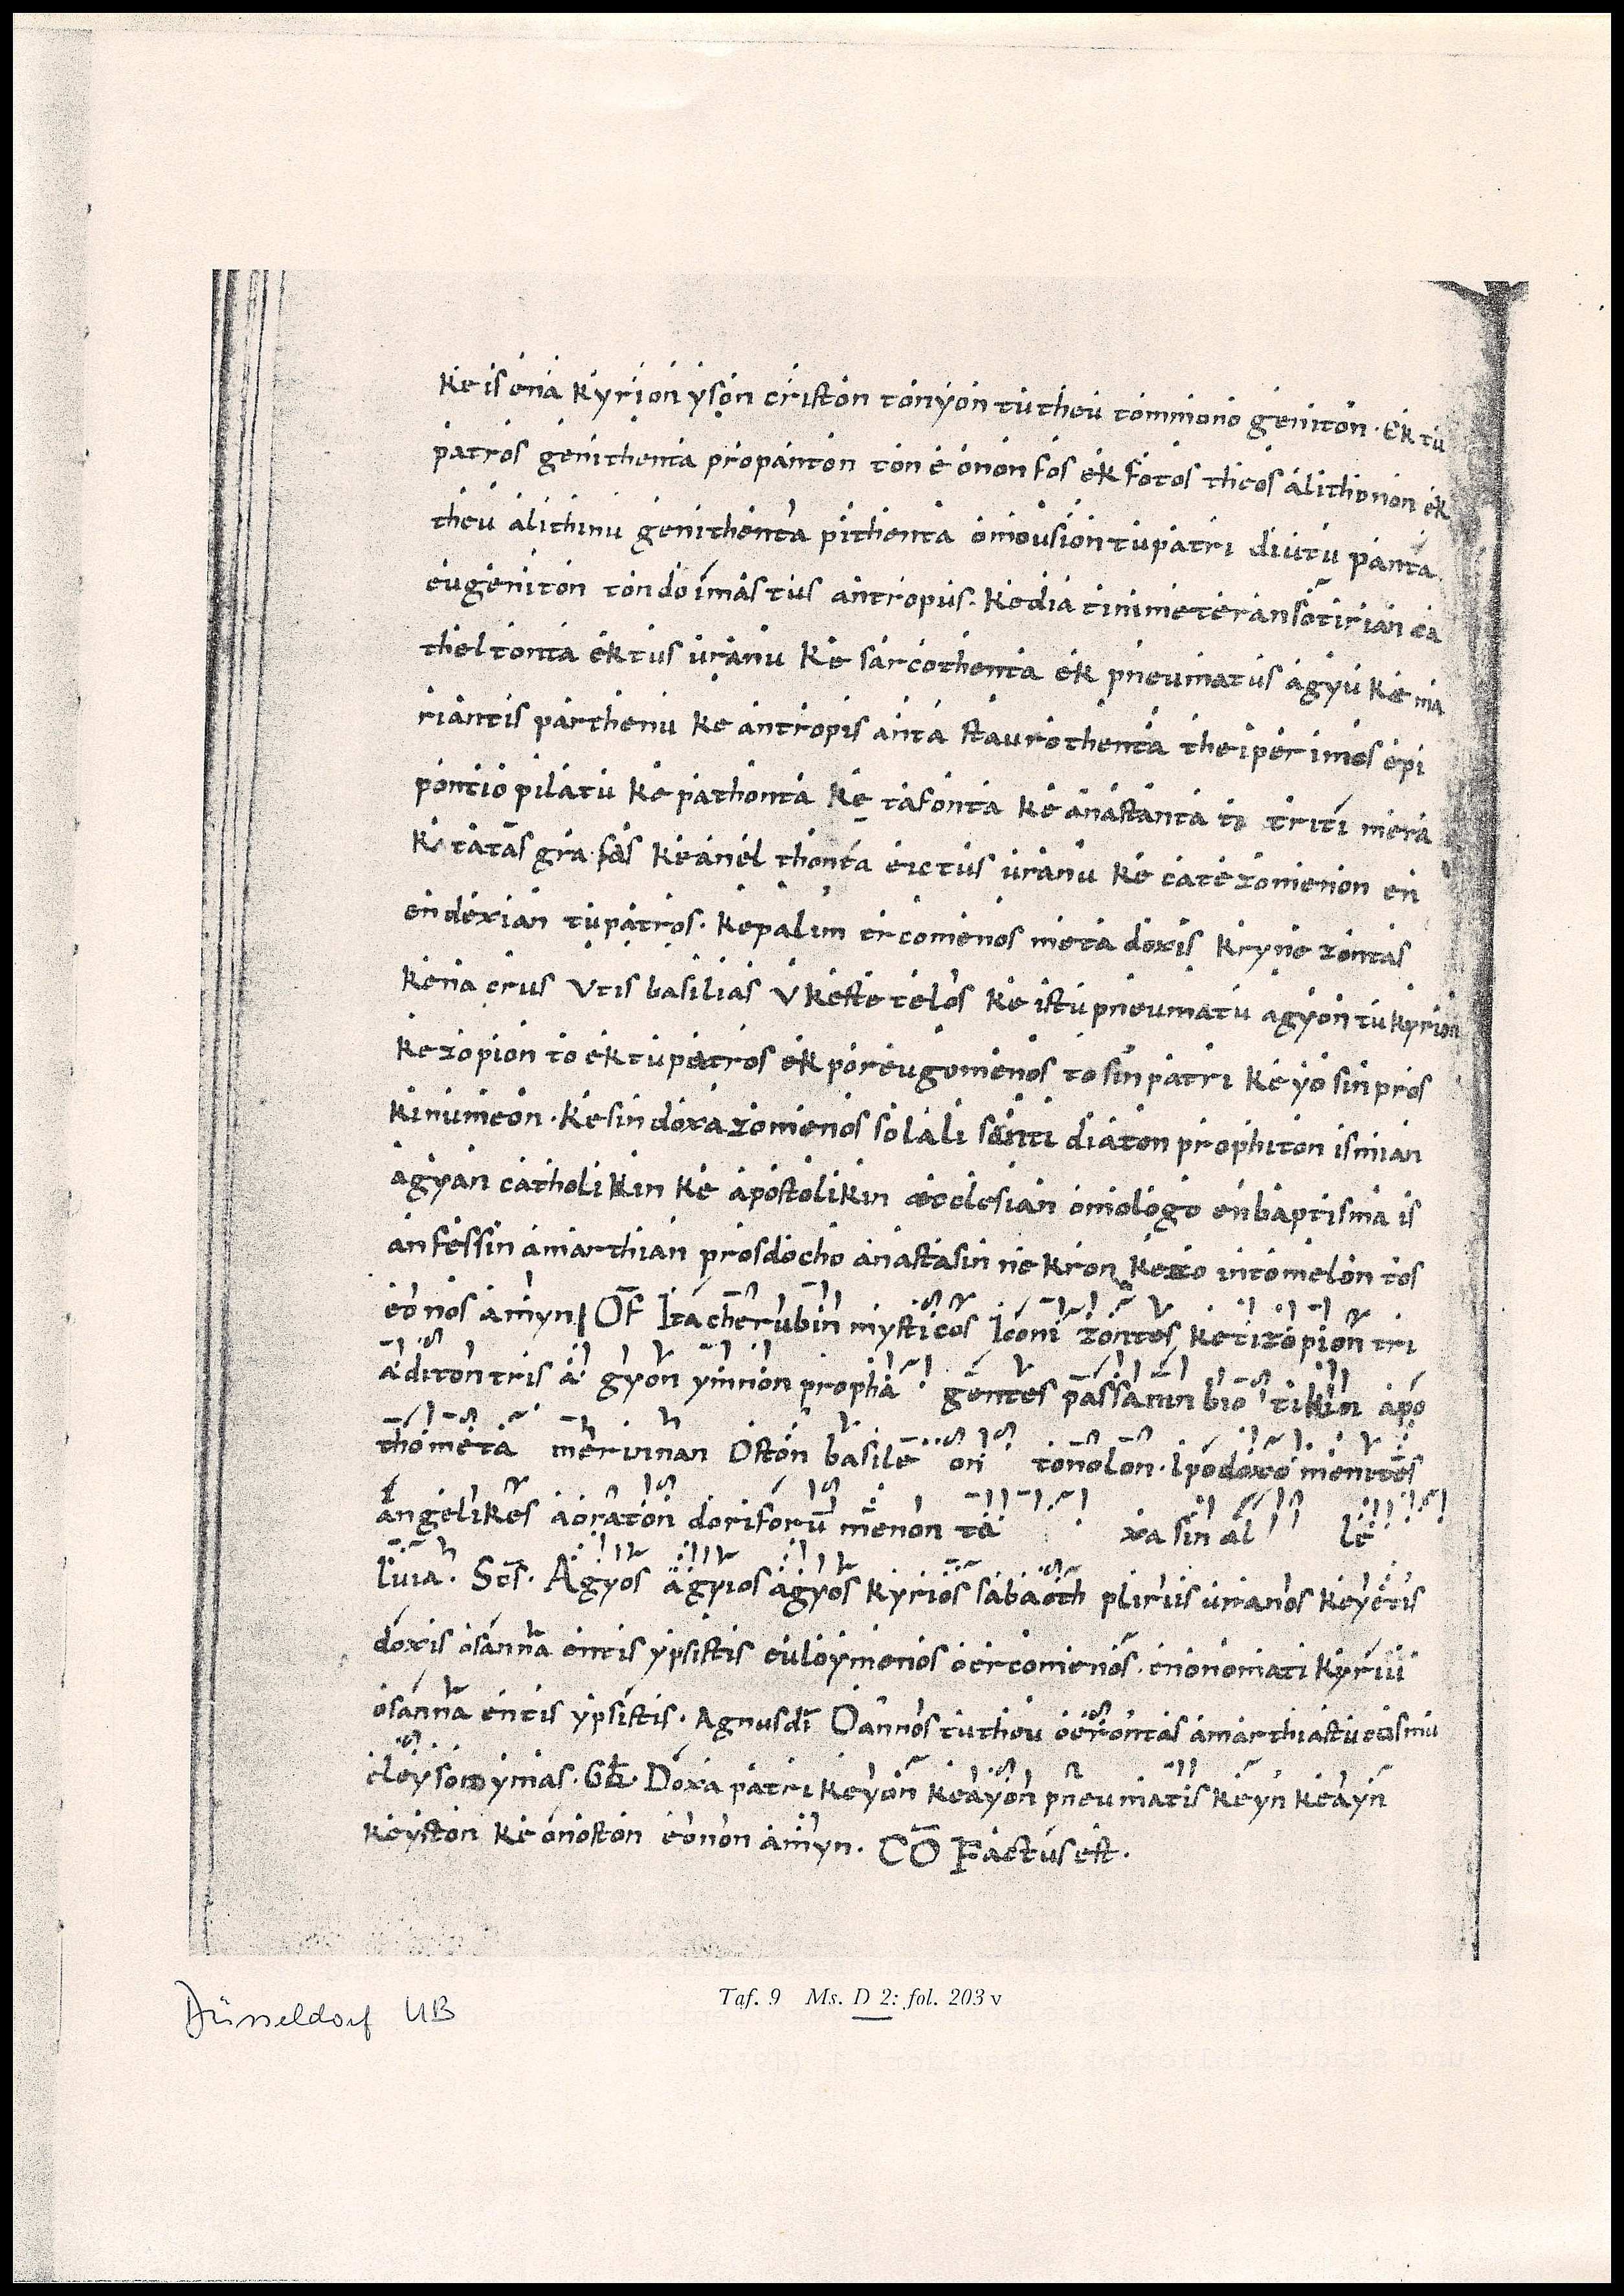 Ke is ena Kyrion yson criston ton yon tu theu tommono geniton. Ek tu
patros genithenta propanton ton eonon fos ek fotos theos alithonon ek
theu alithinu genithenta pithenta omousion tu patri diutu panta
eugeniton ton do imas tus antropus. Ke dia tinimeteran sotirian ca
theltonta ek tus uranu Ke sarcothenta ek pneumatus agyu Ke ma
riantis parthenu Ke antropis anta staurothenta the iper imos epi
pontio pilatu Ke pathonta Ke tafonta Ke anastanta to triti mera
tatas gra fas Ke anel thonta eictus uranu Ke catezomenon en
en dexian tu patros. Ke palim ercomenos meta doxis Kryne zontas
Kena crus Vtis basilias V Keste telos Ke istu pneumatu agyon tu Kyrion
Ke zopion to ek tu patros ek poreugomenos to sin patri Ke yo sin pros
Kinumeon. Ke sin doxazomenos so lali santi diaton prophiton ismian
agyan catholikin Ke apostolikin ecclesian omologo en baptisma is
anfessin amarthian prosdocho anastasin nekron Ke zo intomelon tos
eonos amyn Of Ita cherubin mysticos Iconi zontes Ke ti zopion tri
aditon tris a gyon ymnon propha gentes passamn bio tikin apo
thometa merimnan Oston basile on tonolon. Ipodoxo menites
angelikes aoraton doriforu menon ta xa sin al le
luia. Scs. Agyos agyios agyos Kyrios sabaoth plirus uranos Ke yetis
doxis osanna entis ypsistis euloymenos oercomenos. en onomati Kyriu
osanna entis ypsistis. Agnus di O annos tu theu oerontas amarthias tu cosmu
eleyson ymas. Gla. Doxa patri Ke yon Ke ayon pneumatis Ke yn Ke ayn
Ke yston Ke onoston eonon amyn. CO Factus est.
Düsseldorf UB
Taf. 9 Ms. D 2: fol. 203 v